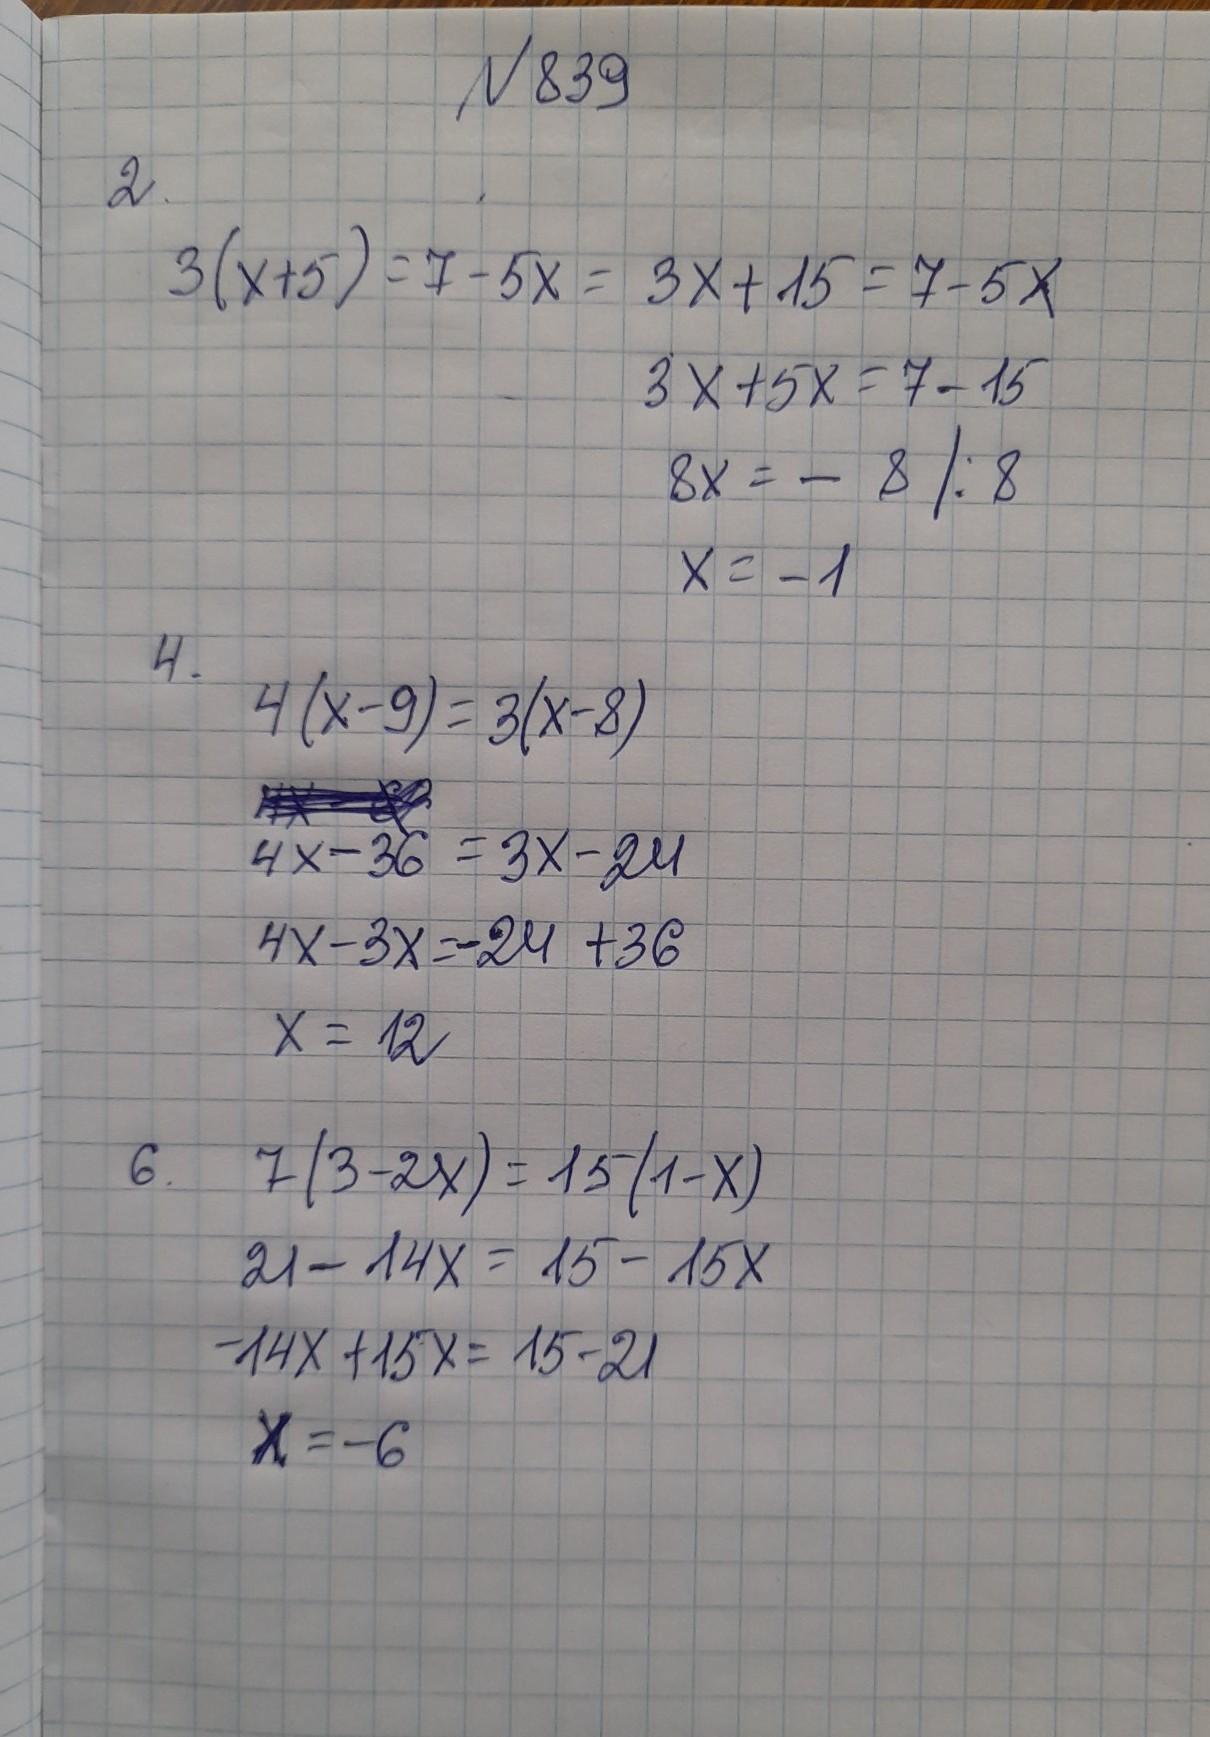 №839
2.
3(x+5)=7-5x= 3x+15=7-5x
3x+5x=7-15
8x=-8/:8
x=-1
4.
4(x-9)=3(x-8)
4x-36=3x-24
4x-3x=-24+36
x=12
6. 7(3-2x)=15(1-x)
21-14x=15-15x
-14x+15x=15-21
x=-6